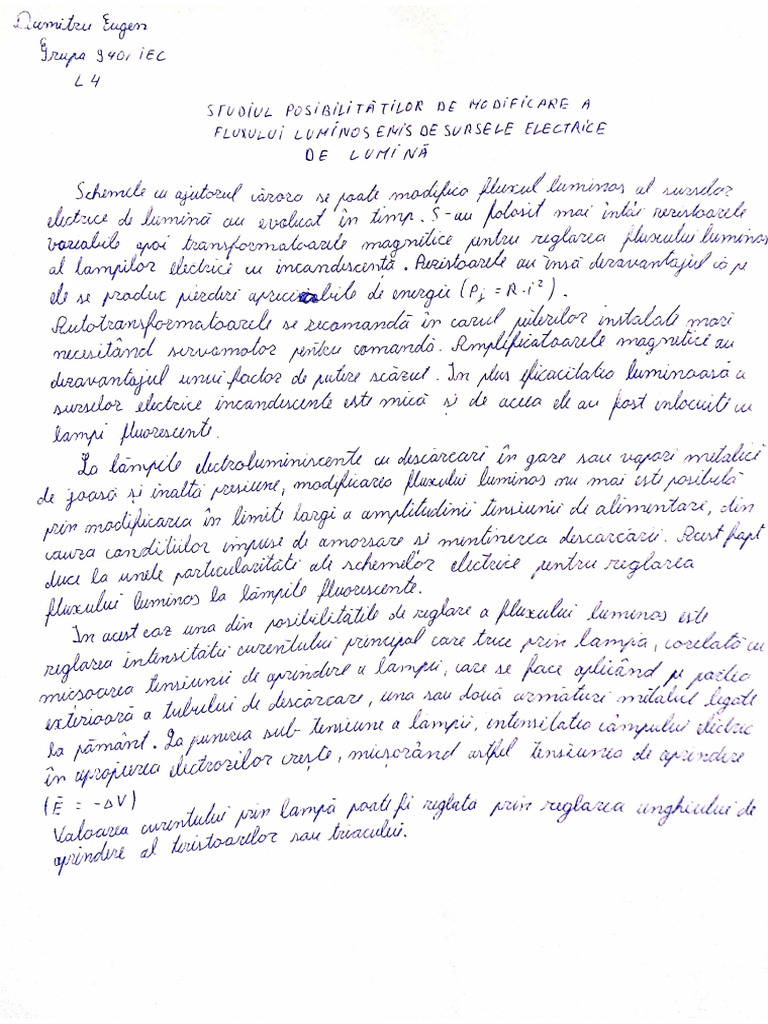 Dumitru Eugen
Grupa 940, IEC
L4
STUDIUL POSIBILITĂȚILOR DE MODIFICARE A
FLUXULUI LUMINOS EMIS DE SURSELE ELECTRICE
DE LUMINĂ
Schemele cu ajutorul cărora se poate modifica fluxul luminos al surselor
electrice de lumină au evoluat în timp. S-au folosit mai întâi rezistoarele
variabile apoi transformatoarele magnitice pentru reglarea fluxului luminos
al lampilor electrice cu incandescentă. Rezistoarele au însă dezavantajul că pe
ele se produc pierderi apreciabile de energie (Pj = R·i²).
Autotransformatoarele se recomandă în cazul puterilor instalate mari
necesitând servomotor pentru comandă. Amplificatoarele magnetice au
dezavantajul unui factor de putere scăzut. In plus eficacitatea luminoasă a
surselor electrice incandescente este mică și de aceea ele au fost inlocuite cu
lampi fluorescente.
La lâmpile electroluminiscente cu descărcari în gaze sau vapori metalici
de joasă și inaltă presiune, modificarea fluxului luminos nu mai este posibilă
prin modificarea în limite largi a amplitudinii tensiunii de alimentare, din
cauza conditiilor impuse de amorsare si mentinerea descărcării. Acest fapt
duce la unele particularităti ale schemelor electrice pentru reglarea
fluxului luminos la lâmpile fluorescente.
In acest caz una din posibilitătile de reglare a fluxului luminos este
reglarea intensitătii curentului principal care trece prin lampa, corelată cu
micsoarea tensiunii de aprindere a lampii, care se face aplicând pe partea
exterioară a tubului de descărcare, una sau două armături metalice legate
la pământ. La punerea sub tensiune a lâmpii, intensitatea câmpului electric
în apropierea electrozilor crește, micșorând astfel tensiunea de aprindere
(Ē = -ΔV)
Valoarea curentului prin lampă poate fi reglata prin reglarea unghiului de
aprindere al tiristoarelor sau triacului.